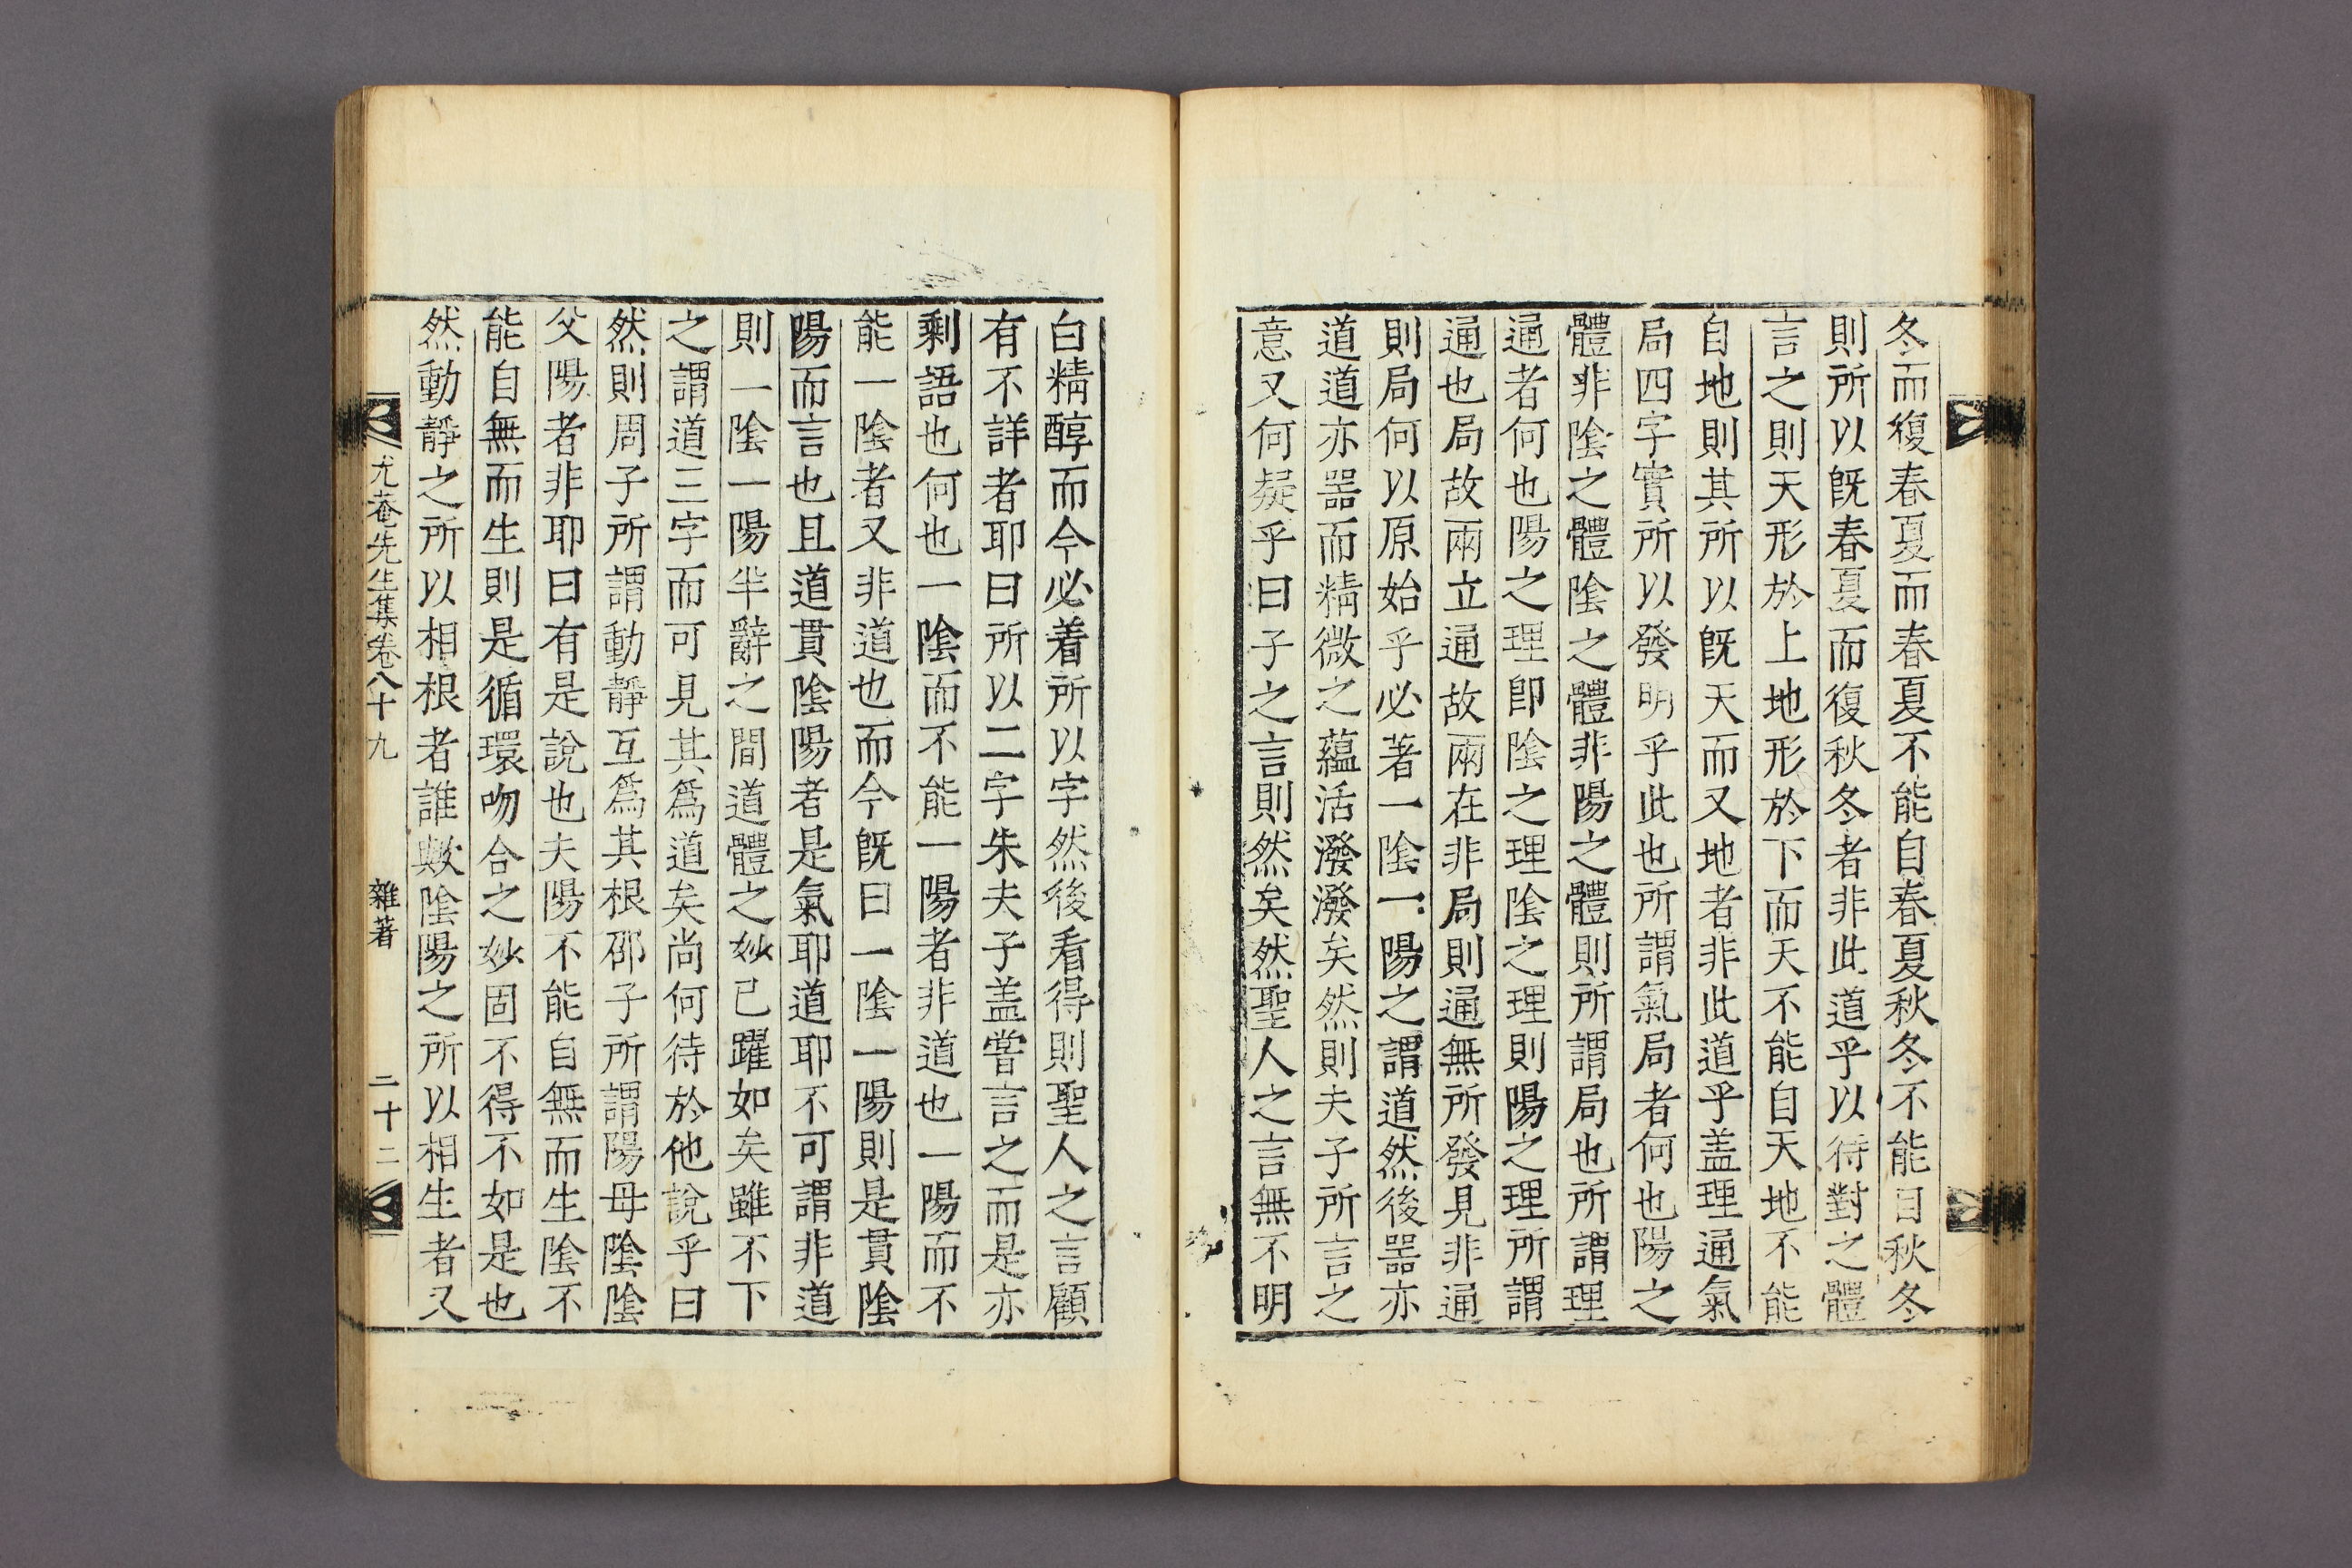 冬而復春夏而春夏不能自春夏秋冬不能自秋冬
則所以旣春夏而復秋冬者非此道乎以待對之體
言之則天形於上地形於下而天不能自天地不能
自地則其所以旣天而又地者非此道乎盖理通氣
局四字實所以發明乎此也所謂氣局者何也陽之
體非陰之體陰之體非陽之體則所謂局也所謂理
通者何也陽之理卽陰之理陰之理則陽之理所謂
通也局故兩立通故兩在非局則通無所發見非通
則局何以原始乎必著一陰一陽之謂道然後器亦
道道亦器而精微之蘊活潑潑矣然則夫子所言之
意又何疑乎曰子之言則然矣然聖人之言無不明
白精醇而今必着所以字然後看得則聖人之言顧
有不詳者耶曰所以二字朱夫子盖嘗言之而是亦
剩語也何也一陰而不能一陽者非道也一陽而不
能一陰者又非道也而今旣曰一陰一陽則是貫陰
陽而言也且道貫陰陽者是氣耶道耶不可謂非道
則一陰一陽半辭之間道體之妙已躍如矣雖不下
之謂道三字而可見其爲道矣尚何待於他說乎曰
然則周子所謂動靜互爲其根邵子所謂陽母陰陰
父陽者非耶曰有是說也夫陽不能自無而生陰不
能自無而生則是循環吻合之妙固不得不如是也
然動靜之所以相根者誰歟陰陽之所以相生者又
尤菴先生集卷八十九 雜著 二十二